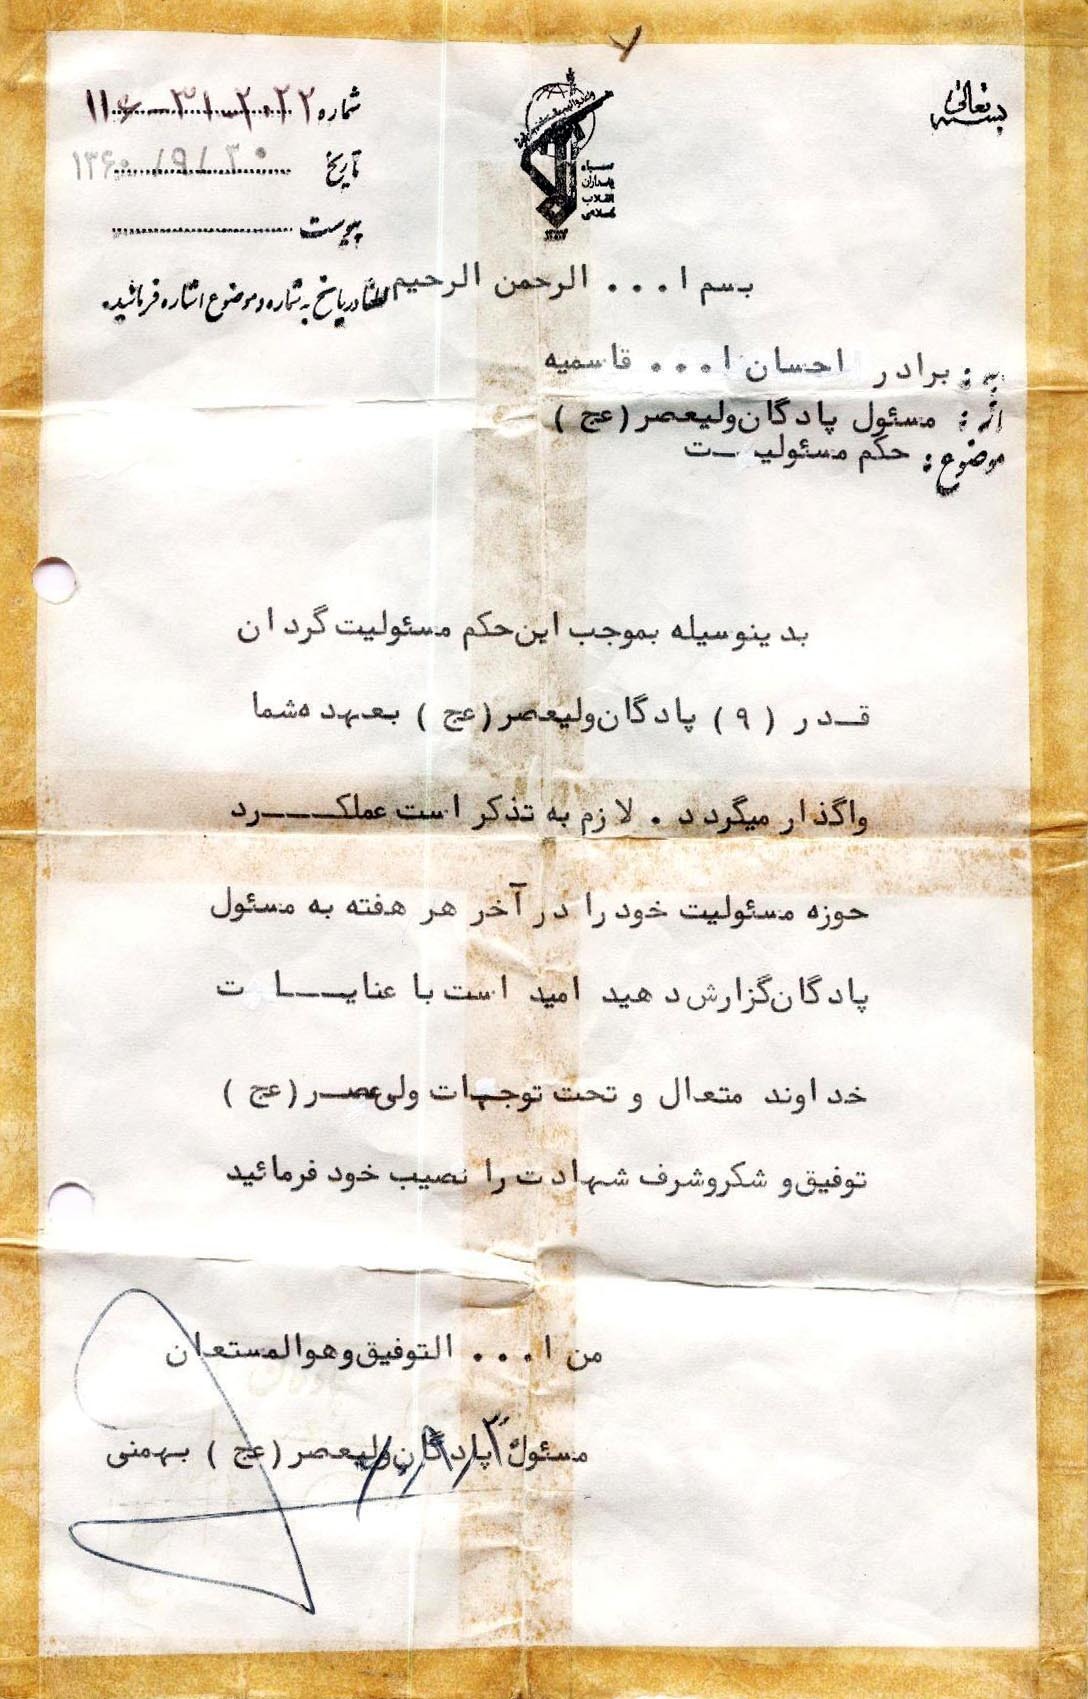 بسمه تعالی
سپاه
پاسداران
انقلاب
اسلامی
شماره ۱۱۶-۳۱-۲۰۲۲
تاریخ ۱۳۶۰/۹/۳۰
پیوست
لطفا در پاسخ به شماره و موضوع اشاره فرمائید.
بسم ا... الرحمن الرحیم
به : برادر احسان ا... قاسمیه
از : مسئول پادگان ولیعصر (عج )
موضوع : حکم مسئولیـت
بدینوسیله بموجب این حکم مسئولیت گردان
قـدر (۹) پادگان ولیعصر (عج ) بعهده شما
واگذار میگردد . لازم به تذکر است عملکـــرد
حوزه مسئولیت خود را در آخر هر هفته به مسئول
پادگان گزارش دهید امید است با عنایـــات
خداوند متعال و تحت توجهات ولی عصـر (عج )
توفیق و شکر و شرف شهادت را نصیب خود فرمائید
من ا... التوفیق و هو المستعان
مسئول پادگان ولیعصر (عج ) بهمنی